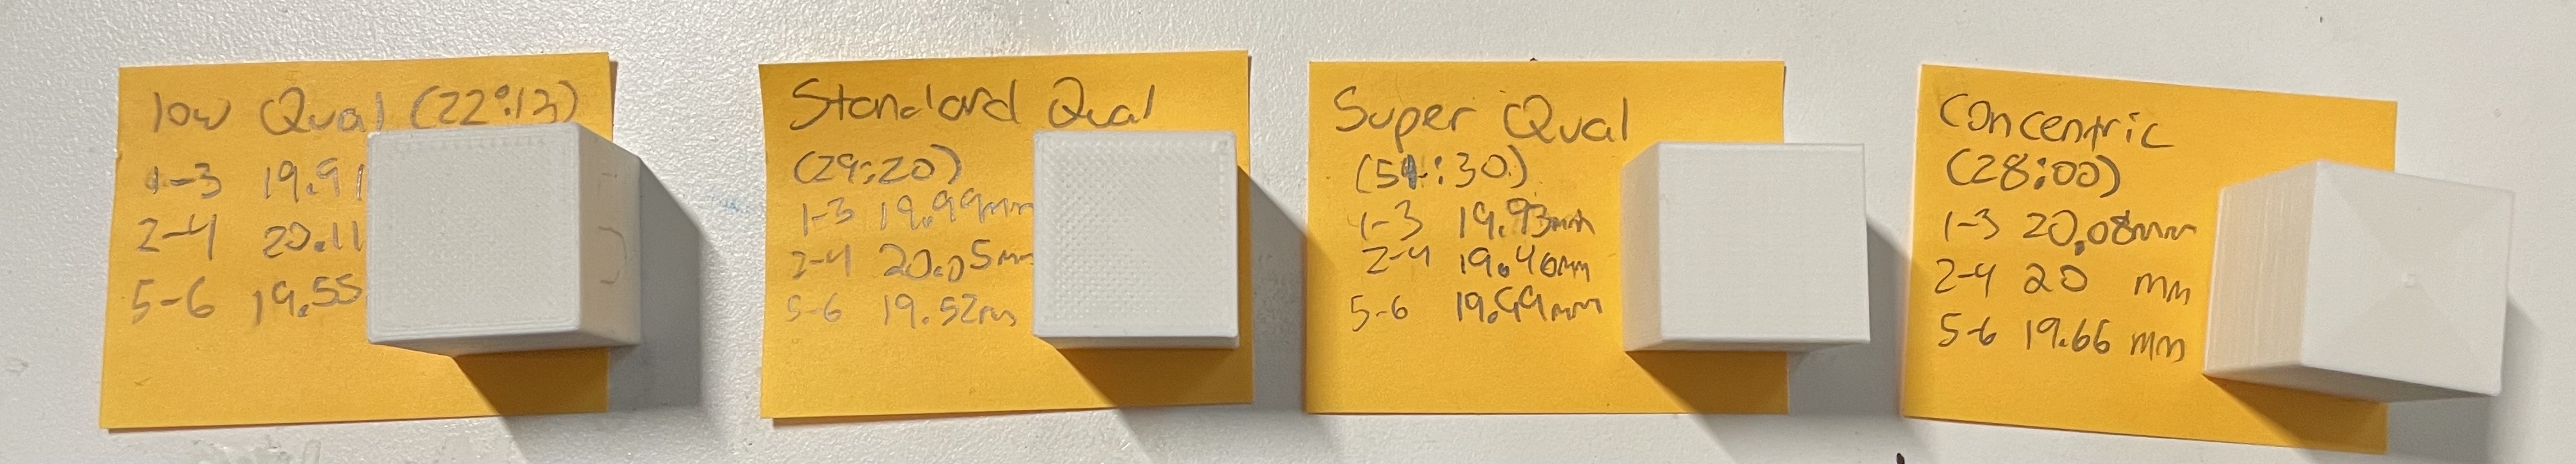 low Qual (22:13)
1-3 19.91
2-4 20.11
5-6 19.55
Standard Qual
(29:20)
1-3 19.99mm
2-4 20.05mm
5-6 19.52mm
Super Qual
(54:30)
1-3 19.93mm
2-4 19.46mm
5-6 19.99mm
Concentric
(28:00)
1-3 20.08mm
2-4 20 mm
5-6 19.66 mm